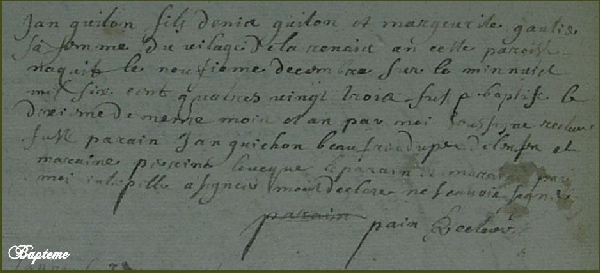 Jan quilon fils denis quilon et margeurite gautie
sa femme du vilage de la renais an cette paroise
naquit le neufieme decembre sur le minnuict
mil six cent quatres vingt trois fut p baptise le
dixisme de meme mois et an par moi soussigne recteur
fust parain Jan guichon beaufrere du pere de lenfan et
maraine presint lesque parain maraine par
moi interpelle a signer mont declare ne scavoir signer
parain pain Recteur
Bapteme